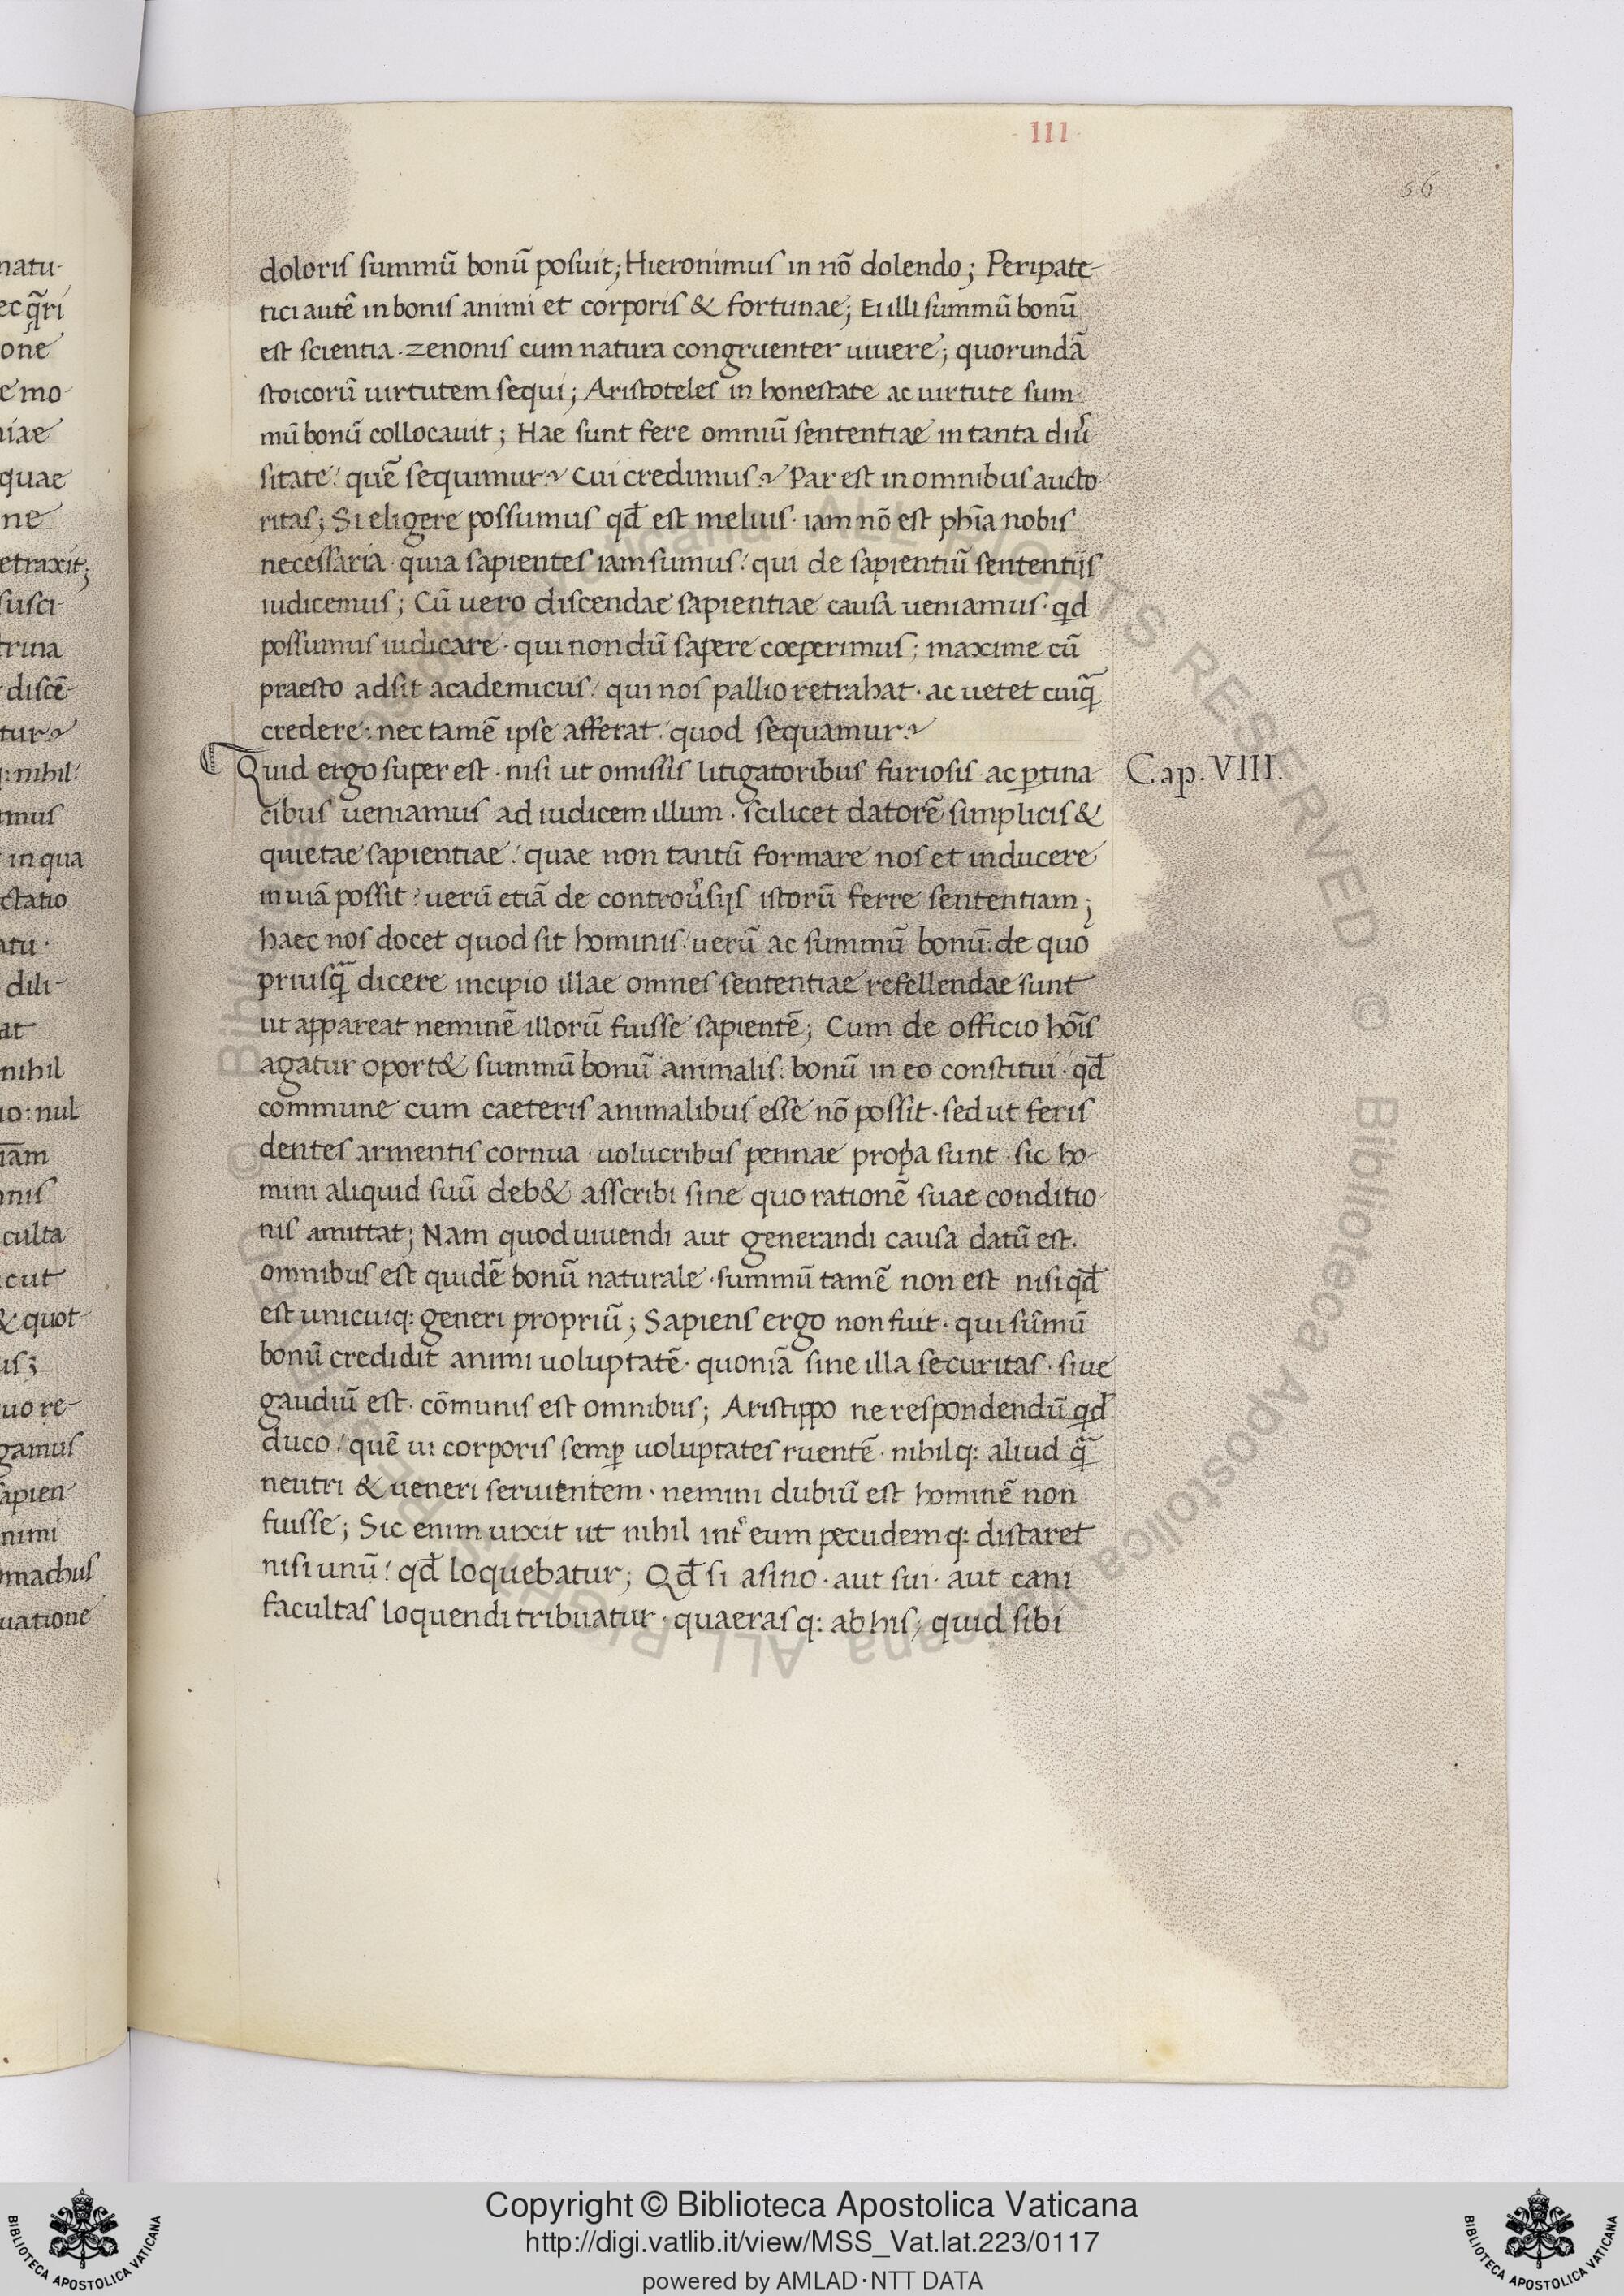 III
56
doloris summū bonū posuit; Hieronimus in nō dolendo; Peripate-
tici autē in bonis animi et corporis & fortunae; Ei illi summū bonū
est scientia · zenonis cum natura congruenter uiuere; quorundā
stoicorū uirtutem sequi; Aristoteles in honestate ac uirtute sum-
mū bonū collocauit; Hae sunt fere omniū sententiae in tanta diu͛
sitate: quē sequimur? Cui credimus? Par est in omnibus aucto-
ritas; Si eligere possumus qd̄ est melius · iam nō est ph̄ia nobis
necessaria · quia sapientes iam sumus: qui de sapientiū sententijs
iudicemus; Cū uero discendae sapientiae causa ueniamus · qd
possumus iudicare · qui nondū sapere coeperimus; maxime cū
praesto adsit academicus: qui nos pallio retrahat · ac uetet cuiq̄
credere: nec tamē ipse afferat: quod sequamur?
Quid ergo super est · nisi ut omissis litigatoribus furiosis ac ꝑtina-
Cap. VIII.
cibus ueniamus ad iudicem illum · scilicet datorē simplicis &
quietae sapientiae: quae non tantū formare nos et inducere
in uiā possit: uerū etiā de controu͛sijs istorū ferre sententiam;
haec nos docet quod sit hominis: uerū ac summū bonū: de quo
priusq̄ dicere incipio illae omnes sententiae refellendae sunt
ut appareat neminē illorū fuisse sapientē; Cum de officio hōis
agatur oport& summū bonū animalis: bonū in eo constitui · qd̄
commune cum caeteris animalibus esse nō possit · sed ut feris
dentes armentis cornua · uolucribus pennae propa sunt · sic ho-
mini aliquid suū deb& asscribi sine quo rationē suae conditio-
nis amittat; Nam quod uiuendi aut generandi causa datū est.
omnibus est quidē bonū naturale · summū tamē non est nisi qd̄
est unicuiq: generi propriū; Sapiens ergo non fuit · qui sūmū
bonū credidit animi uoluptatē · quoniā sine illa securitas · siue
gaudiū est · cōmunis est omnibus; Aristippo ne respondendū qd̄
duco: quē in corporis semꝑ uoluptates ruentē · nihilq: aliud q̄
neutri & ueneri seruientem · nemini dubiū est hominē non
fuisse; Sic enim uixit ut nihil int͛ eum pecudemq: distaret
nisi unū: qd̄ loquebatur; Qd̄ si asino · aut sui · aut cani
facultas loquendi tribuatur · quaerasq: ab his, quid sibi
natu-
ec q̄ri
one
e mo-
iae
quae
ne
etraxit;
susci-
trina
discē-
tur?
q: nihil:
imus
in qua
ctatio
atu ·
dili-
at
nihil
io: nul
iam
nis
culta
cut
& quot
is;
uo re-
gamus
sapien-
nimi
omachus
uatione
© Biblioteca Apostolica Vaticana ALL RIGHTS RESERVED
© Biblioteca Apostolica Vaticana ALL RIGHTS RESERVED
Copyright © Biblioteca Apostolica Vaticana
http://digi.vatlib.it/view/MSS_Vat.lat.223/0117
powered by AMLAD·NTT DATA
BIBLIOTECA APOSTOLICA VATICANA
BIBLIOTECA APOSTOLICA VATICANA